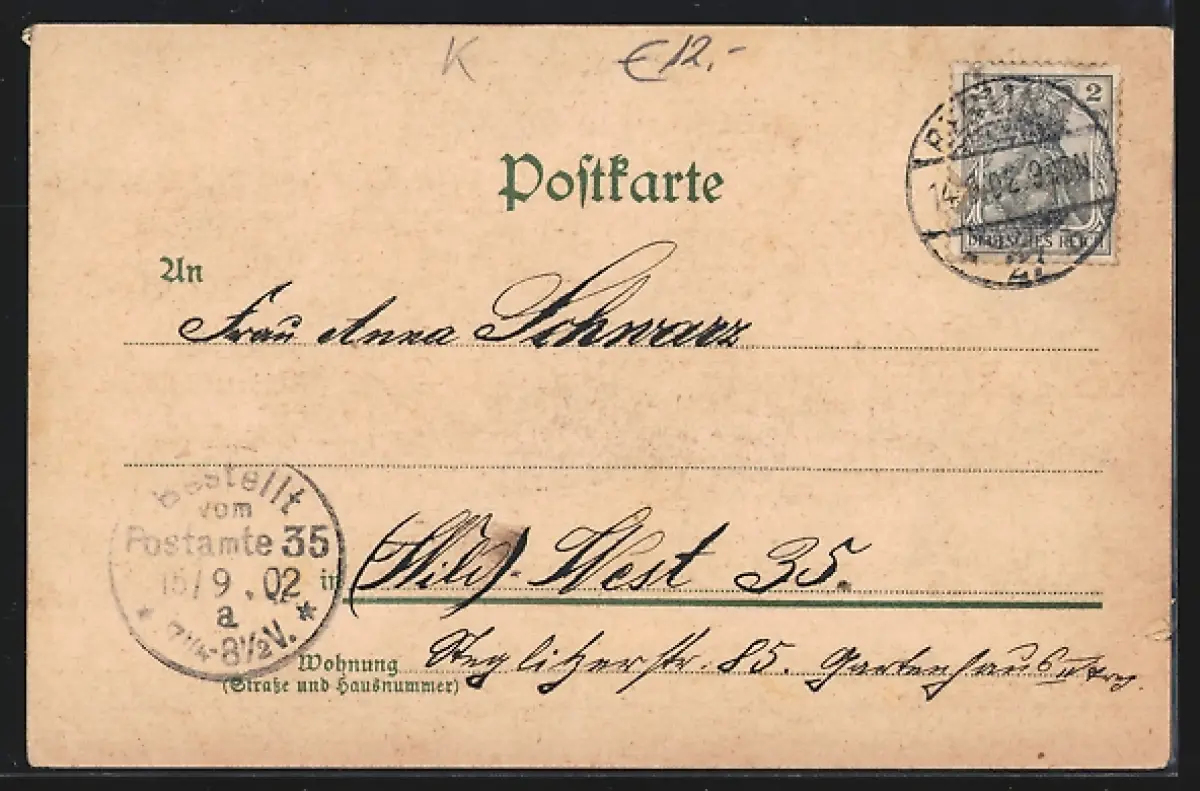 K € 12.-
Postkarte
2
BERLIN
14. 9. 02. 9-10 N
DEUTSCHES REICH
An
Frau Anna Schwarz
Bestellt
vom
Postamte 35
15/9.02
a
7¼-8½V.
in (Wild)-West 35.
Wohnung Steglitzerstr. 85. Gartenhaus II
(Straße und Hausnummer)